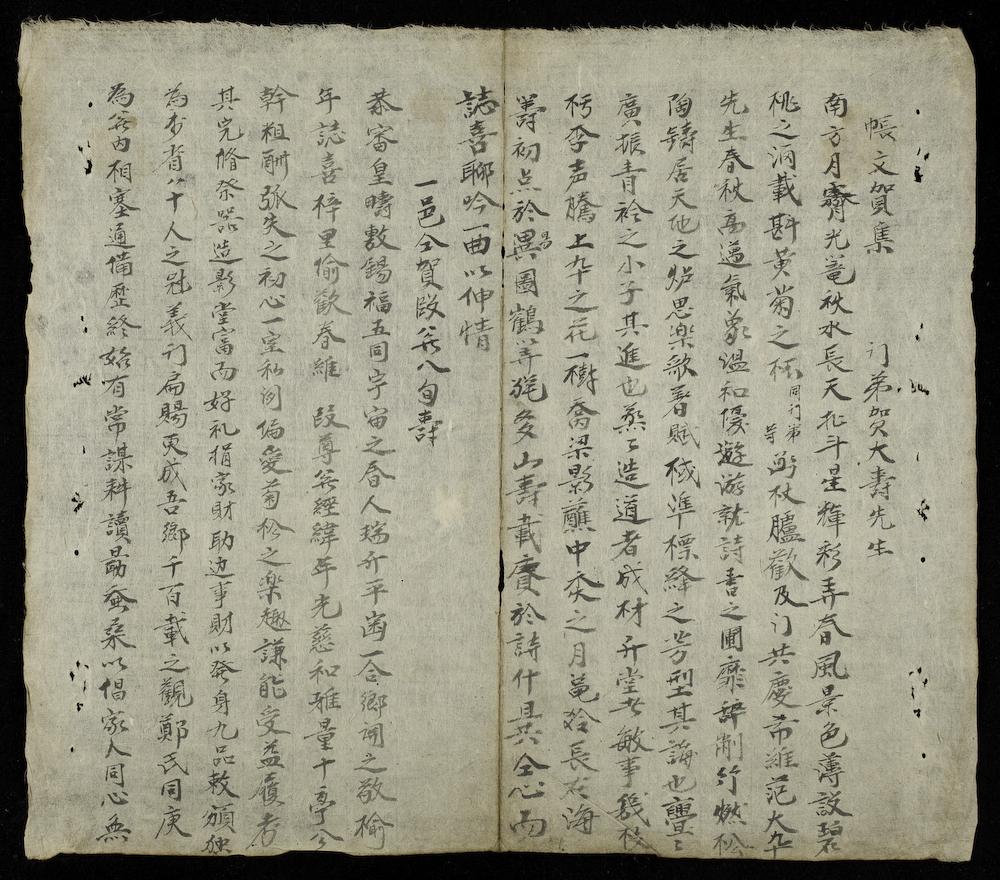 帳文賀集　门弟贺大壽先生
南方月霽光篭秋水長天北斗星輝彩弄春風景色薄設碧
桃之酒載斟黄菊之杯同行第等街杖臚歡及门共慶希維范大年
先生春秋高邁氣象温和優遊游就詩書之圃靡辞削竹燃松
陶鑄居天地之炉思楽歌著賦棫準標絳之芳型其誨也亹〻
廣振青衿之小子其進也蒸〻造道者成材升堂者敏事幾枝
李声騰上年之花一樹喬梁影蘸中天之月亀長在海
籌初点於異圖鶴筭多山壽載賡於詩什具共仝心而
誌喜聊吟一曲以伸情
一邑仝賀段翁八旬壽
恭審皇疇敷錫福五同宇宙之春人瑞升平歯一合鄉閭之敬榆
年誌喜梓里愉歓眷維　段尊翁經緯年光慈和雅量十亭公
幹粗酬弧矢之初心一室私淑偏愛菊松之楽趣謙能受益履考
其完脩祭器造影堂富而好礼捐家財助边事財以發身九品敕頒
為方省八十人之冠義门扁賜更成吾鄉千百載之觀鄭氏同庚
為翁内相塞通備歴終始有常謀耕讀勗蚕桑以倡家人同心無